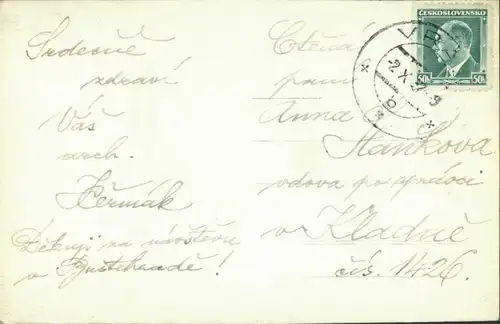 Srdečně
zdraví
Váš
arch.
Heřmák
Děkuji za návštěvu
v Buštěhradě!
ČESKOSLOVENSKO
50h 50h
-2.X.37-9
Ctěná
paní
Anna
Staňková
vdova po správci
v Kladně
čís. 1426.